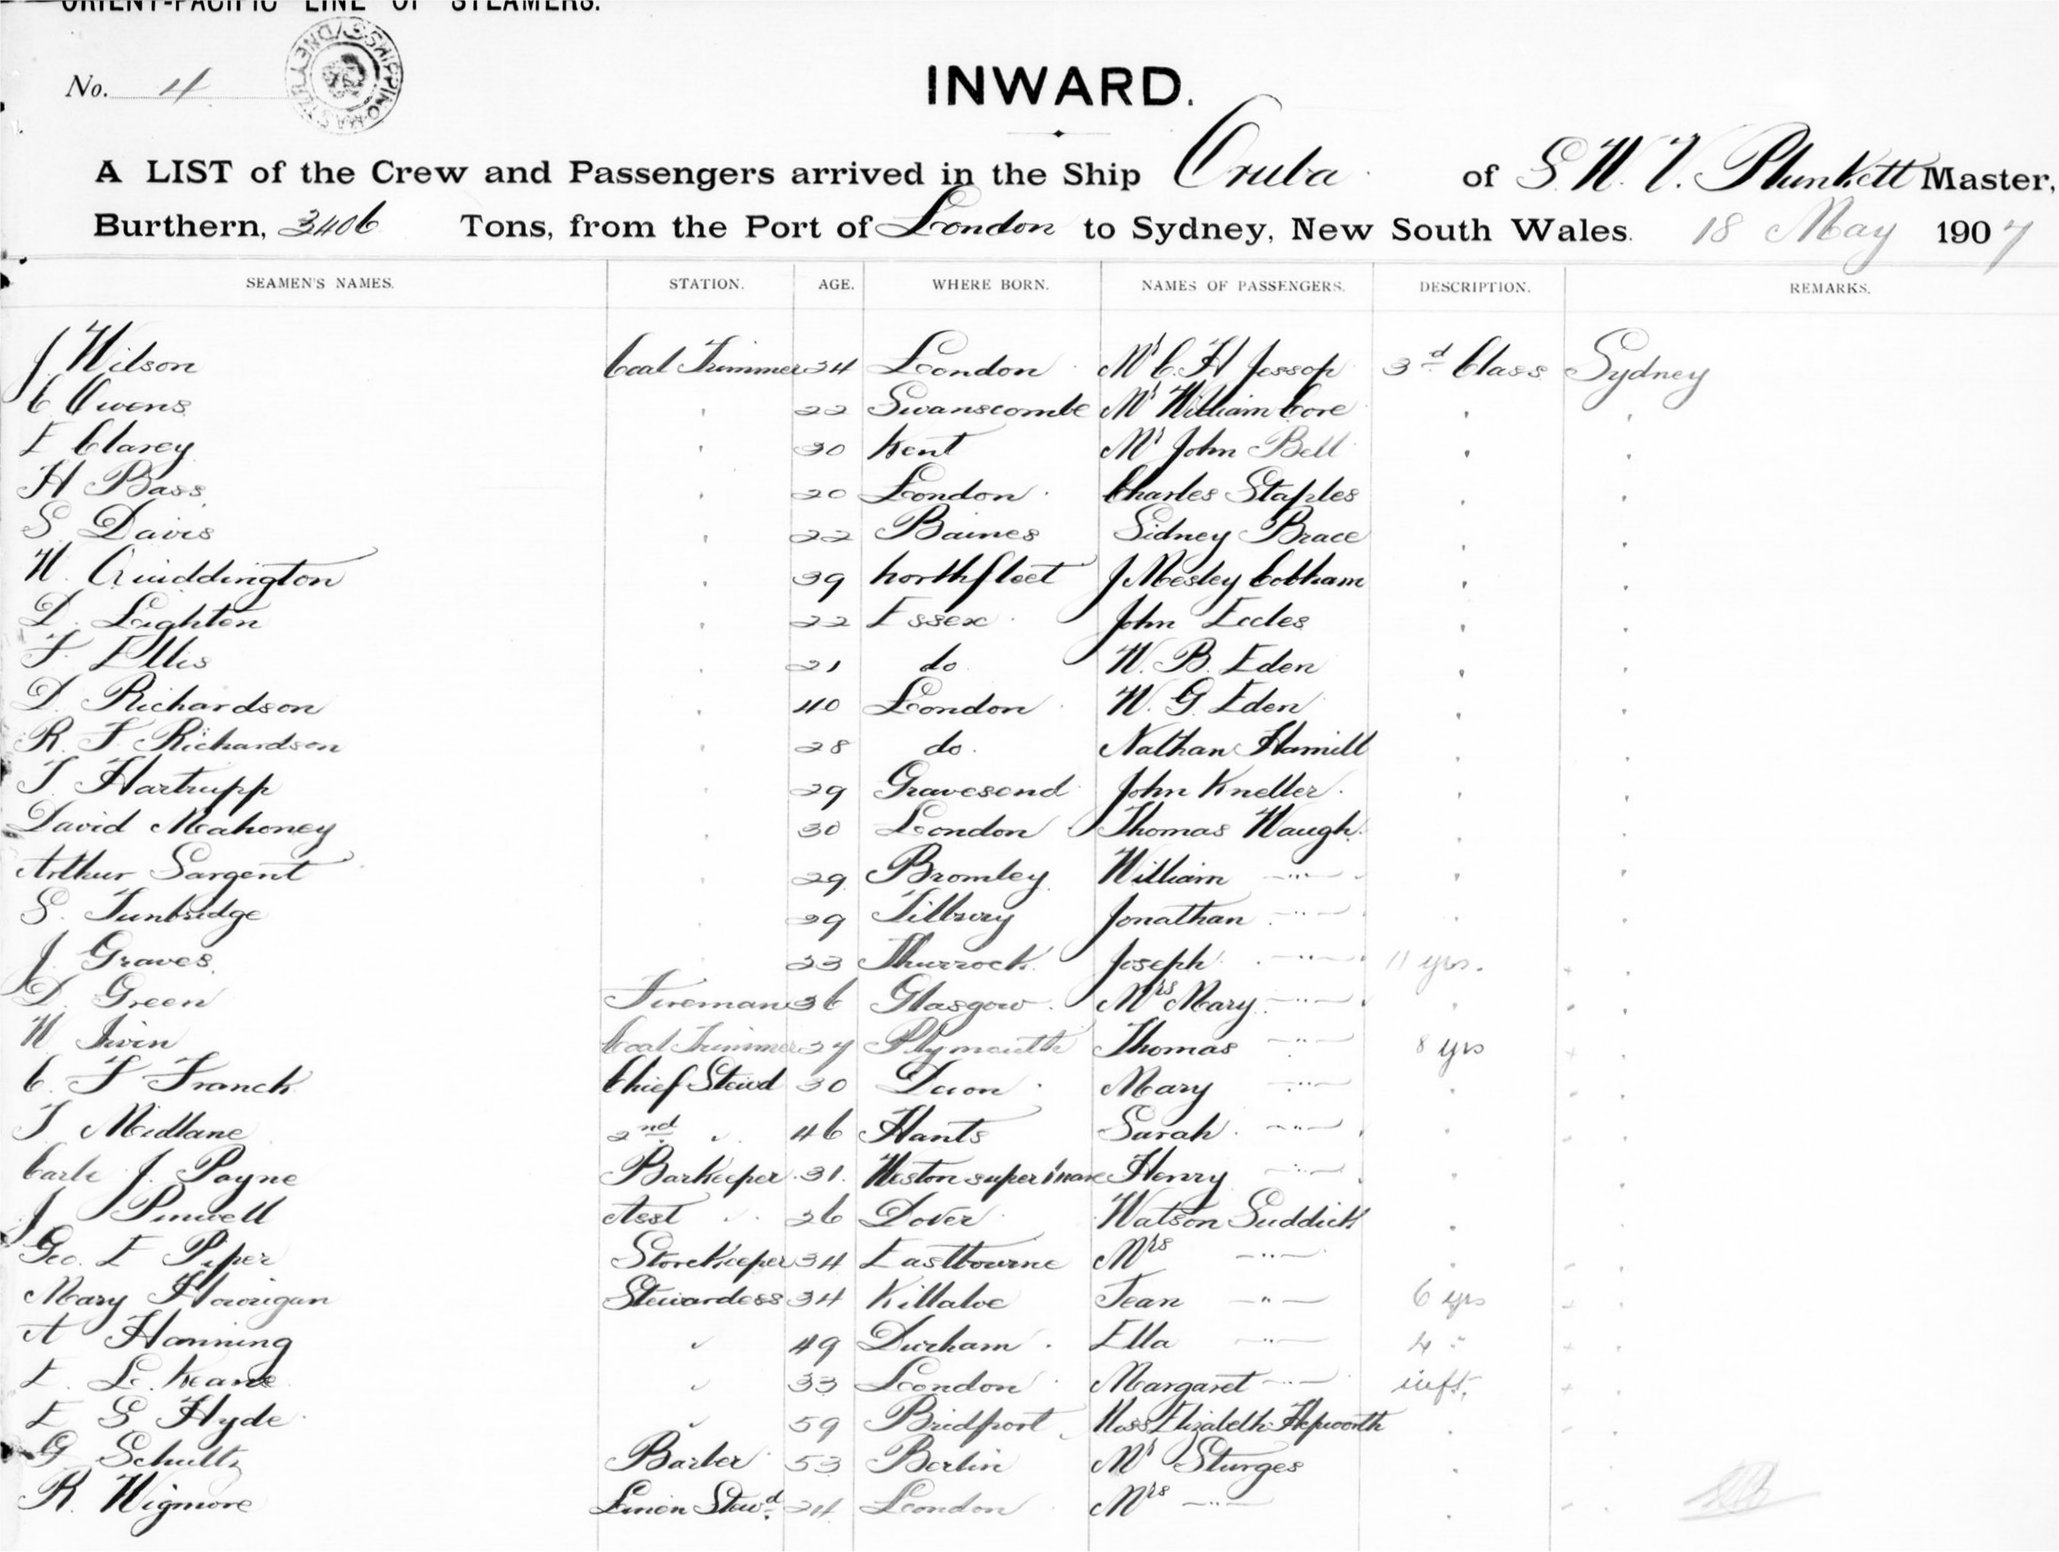 ORIENT-PACIFIC LINE OF STEAMERS.
No. 4
SHIPPING MASTER SYDNEY
INWARD.
A LIST of the Crew and Passengers arrived in the Ship Oruba of S. W. V. Plunkett Master,
Burthern, 3406 Tons, from the Port of London to Sydney, New South Wales. 18 May 1907
SEAMEN'S NAMES. STATION. AGE. WHERE BORN. NAMES OF PASSENGERS. DESCRIPTION. REMARKS.
J Wilson Coal Trimmer 24 London Mr C. H Jessop 3d Class Sydney
C Owens " 22 Swanscombe Mr William Core " "
E Clarey " 30 Kent Mr John Bell " "
H Bass " 20 London Charles Staples " "
S Davis " 22 Baines Sidney Brace " "
W. Quiddington " 39 Northfleet J Wesley Cobham " "
D. Leighton " 22 Essex John Eccles " "
F. Ellis " 21 do W. B. Eden " "
D. Richardson " 40 London W. G. Eden " "
R. F. Richardson " 28 do. Nathan Hamill " "
T. Hartrupp " 29 Gravesend John Kneller " "
David Mahoney " 30 London Thomas Waugh " "
Arthur Sargent " 29 Bromley William —"— " "
S. Tunbridge " 29 Tilbury Jonathan —"— " "
J. Graves " 23 Thurrock Joseph —"— 11 yrs. "
D. Green Fireman 36 Glasgow Mrs Mary —"— " "
W Irvin Coal Trimmer 27 Plymouth Thomas —"— 8 yrs "
C. F Franck Chief Stewd 30 Devon Mary —"— " "
T Midlane 2nd " 46 Hants Sarah —"— " "
Carle J. Payne Barkeeper 31 Weston super mare Henry —"— " "
J Pinwell Asst " 26 Dover Watson Suddick " "
Geo. E Piper Storekeeper 34 Eastbourne Mrs —"— " "
Mary Horrigan Stewardess 34 Killaloe Jean —"— 6 yrs "
A Hanning " 49 Durham Ella —"— 4 " "
E. L. Keane " 33 London Margaret —"— inft. "
E S Hyde " 59 Bridport Miss Elizabeth Hepworth " "
G. Schultz Barber 53 Berlin Mr Sturges " "
R. Wigmore Linen Stewd. 24 London Mrs —"— " "